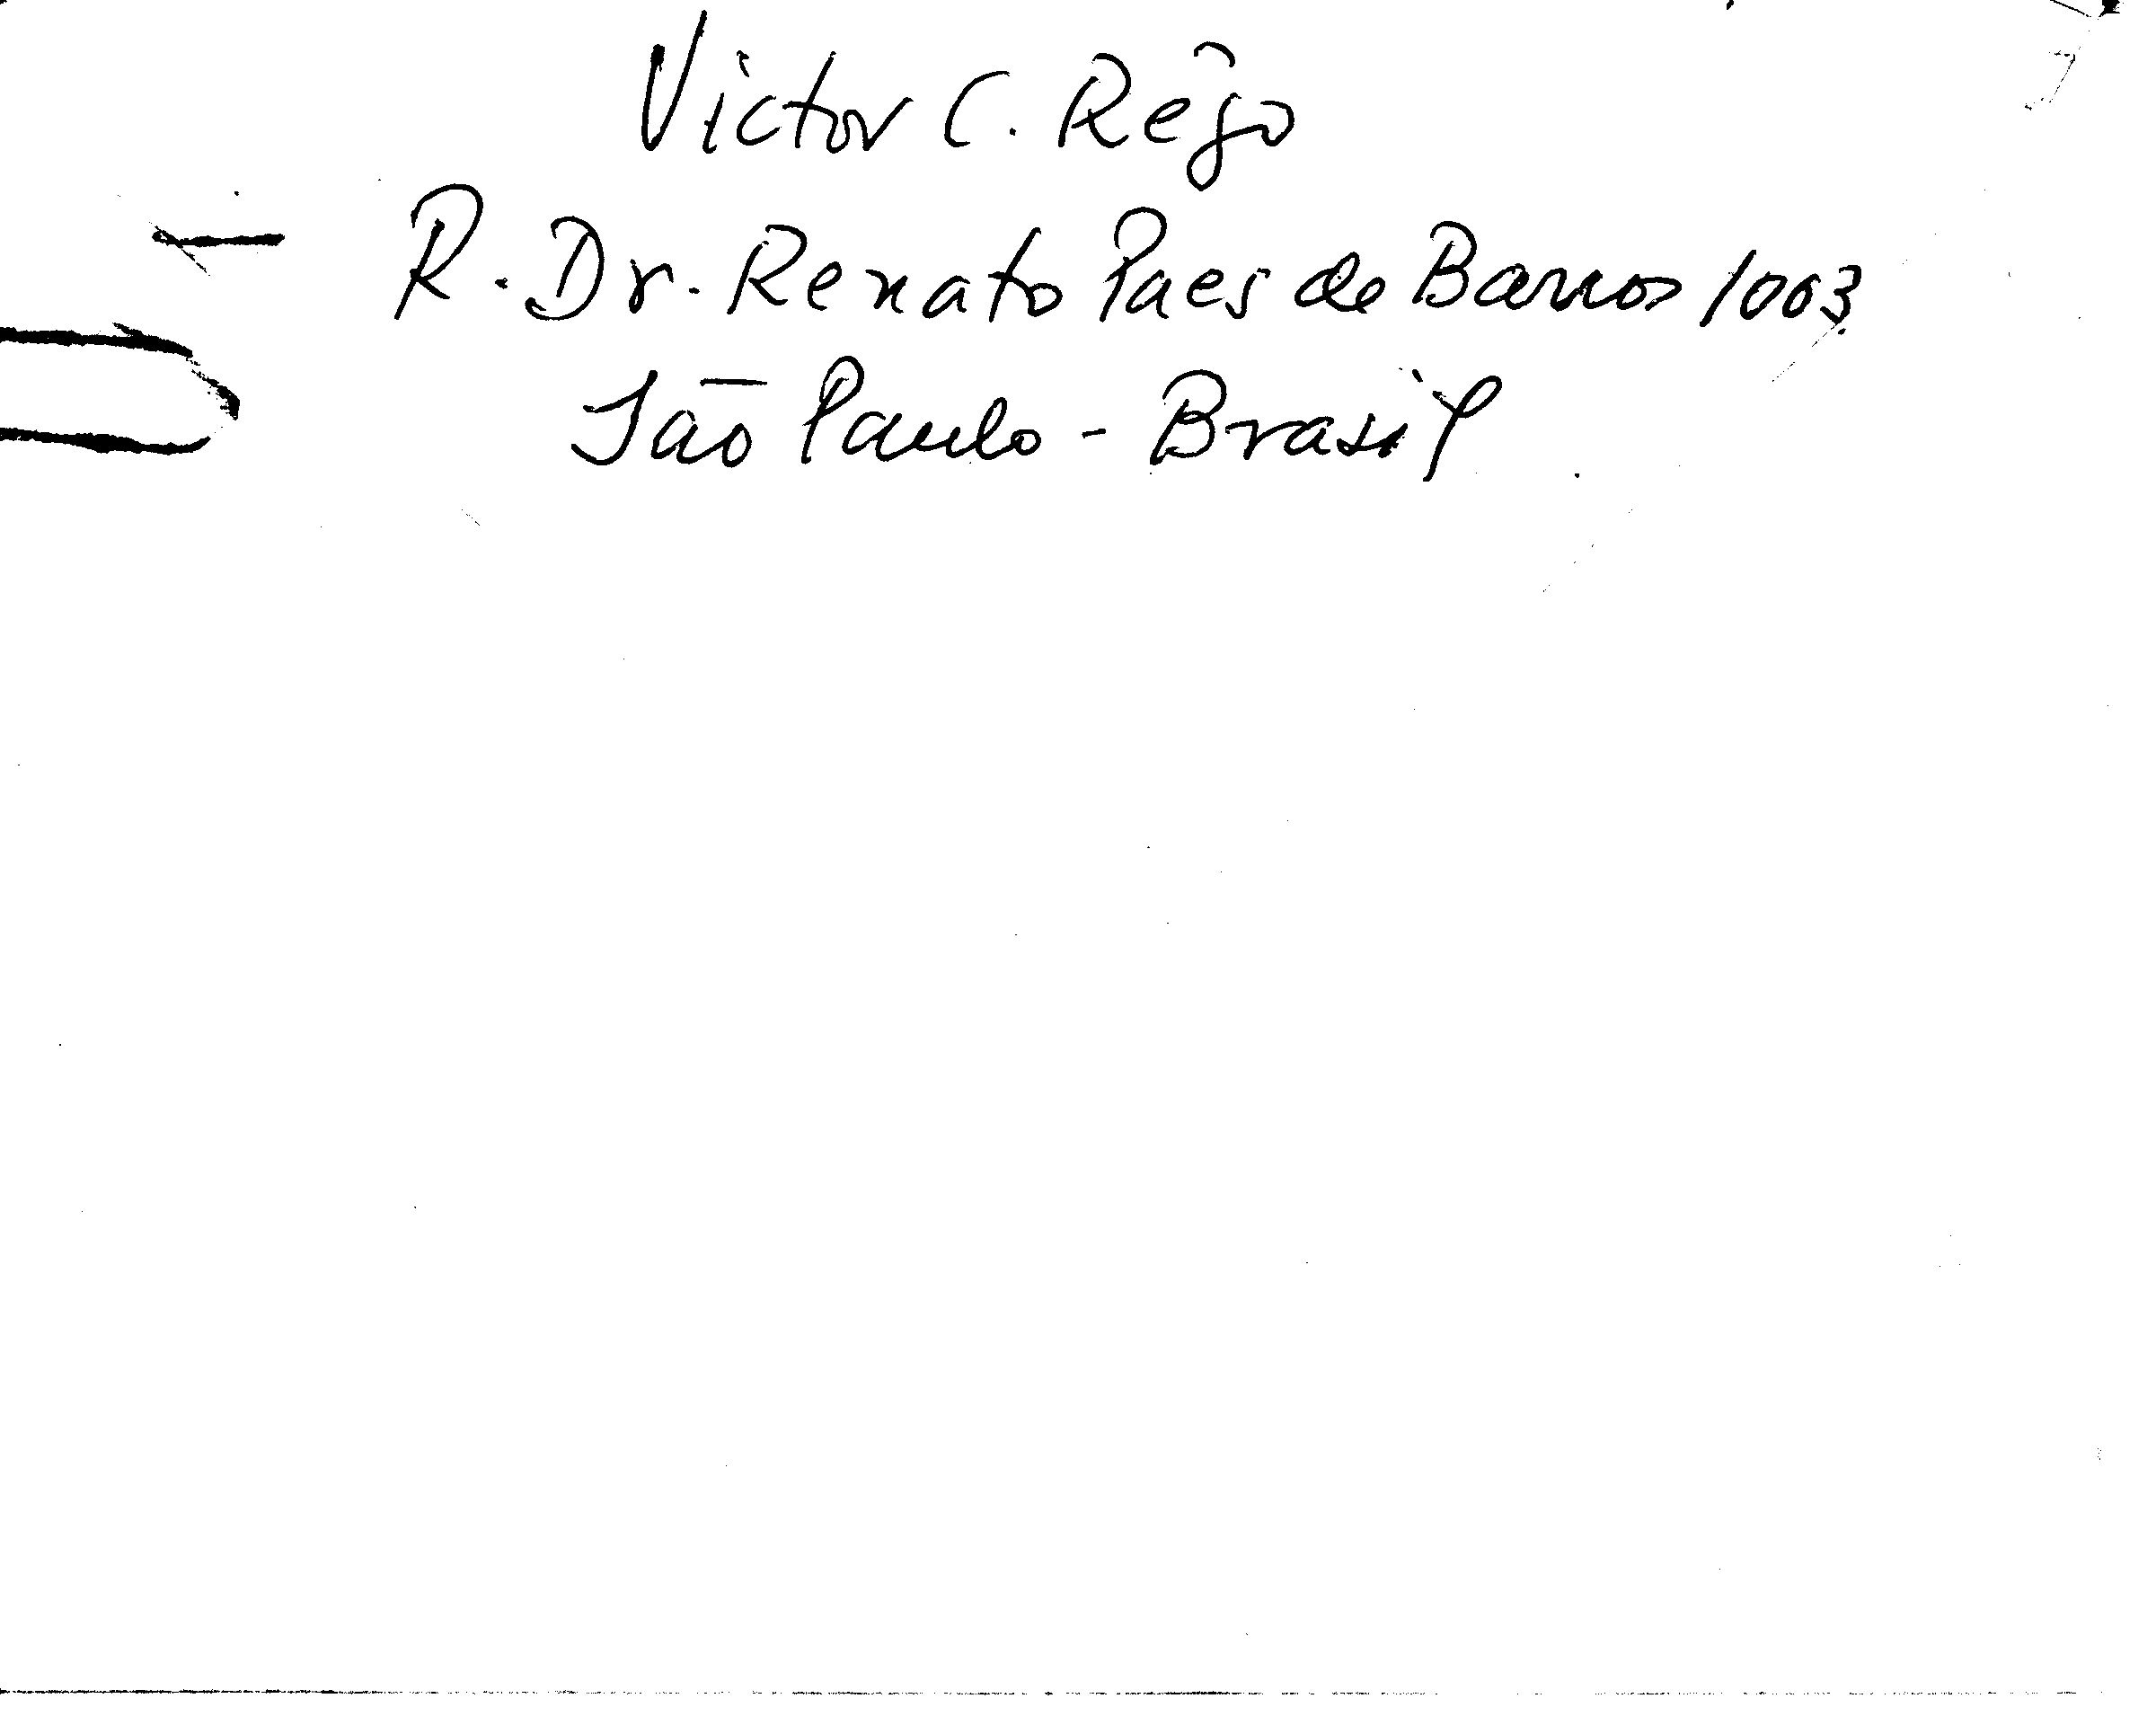 Victor C. Rêgo
R. Dr. Renato Paes de Barros 1003
São Paulo - Brasil